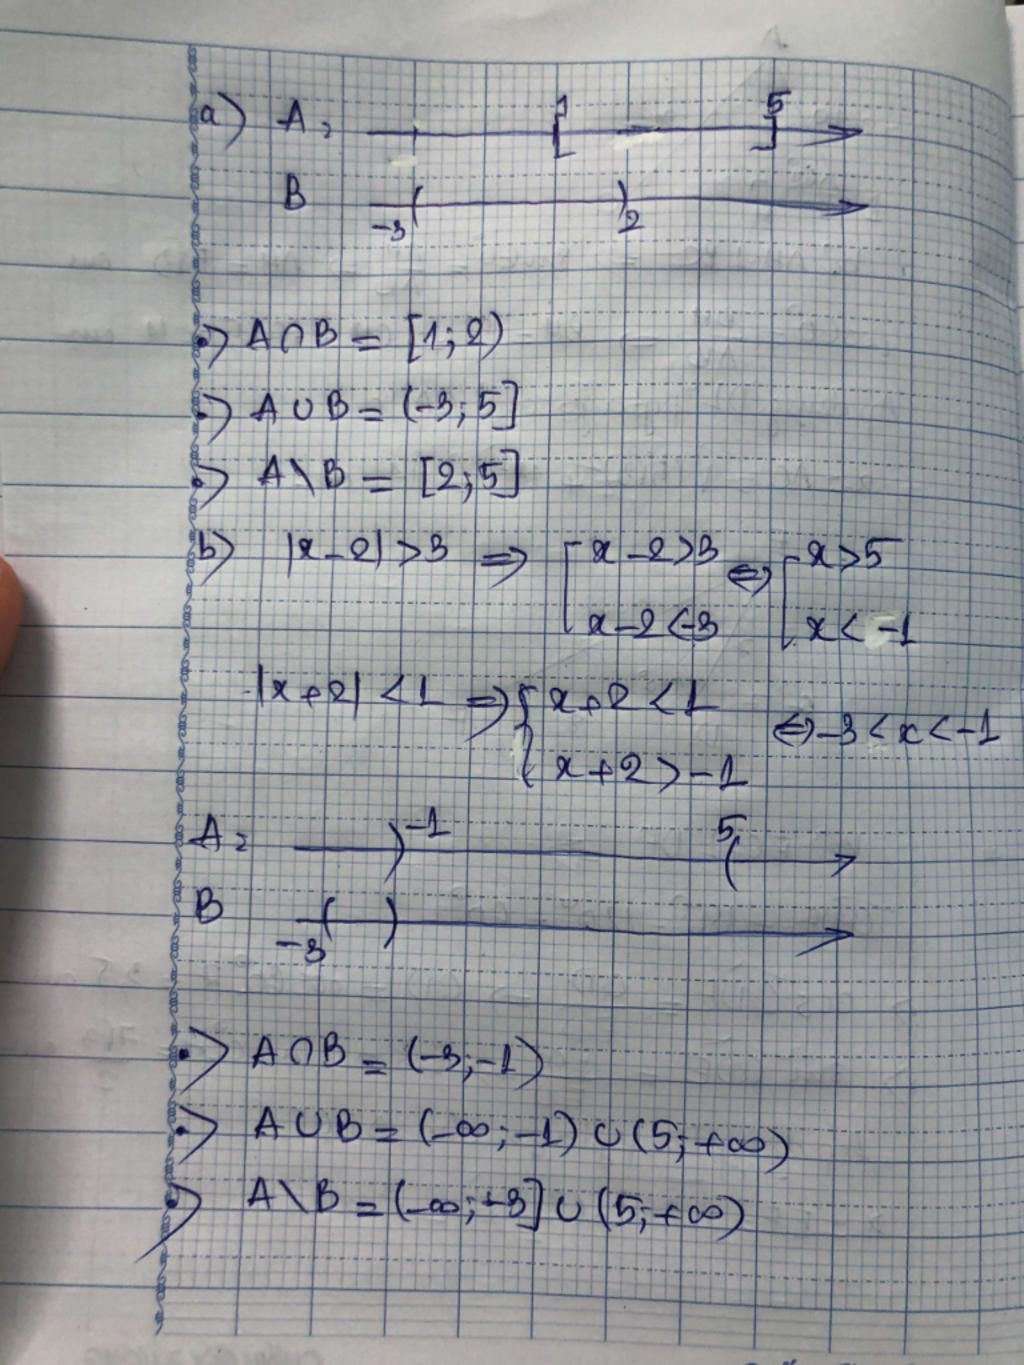 a) A: 1 5
B -3 2
•> A∩B = [1;2)
•> A∪B = (-3;5]
•> A\B = [2;5]
b) |x-2|>3 => [ x-2>3 <=> [ x>5
x-2<-3 x<-1
|x+2|<1 => { x+2<1 <=> -3<x<-1
x+2>-1
A: -1 5
B -3
•> A∩B = (-3;-1)
•> A∪B = (-∞;-1)∪(5;+∞)
•> A\B = (-∞;-3]∪(5;+∞)